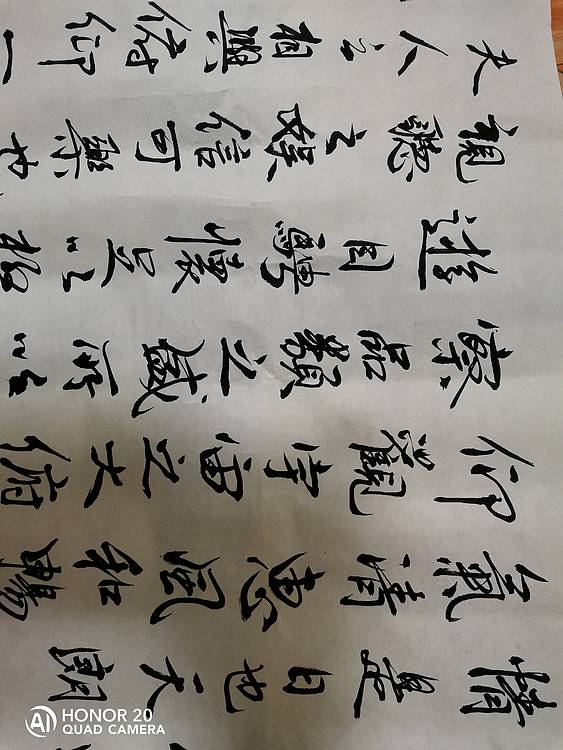 情是日也天朗
氣清惠風和暢
仰觀宇宙之大俯
察品類之盛所以
遊目騁懷足以極
視聽之娛信可樂也
夫人之相與俯仰一
AI HONOR 20
QUAD CAMERA